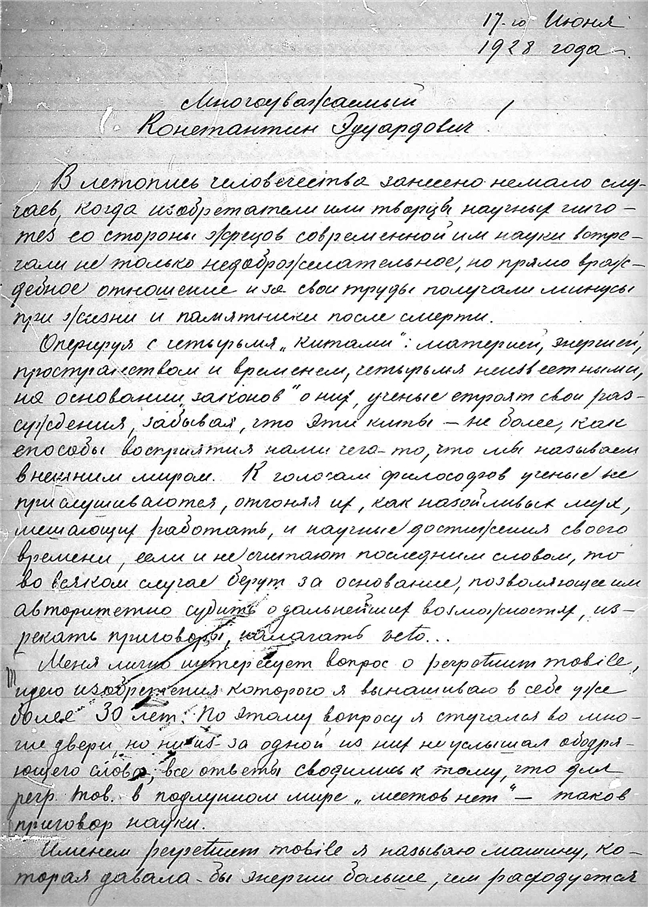 17-го Июня
1928 года.
Многоуважаемый
Константин Эдуардович!
В летопись человечества занесено немало слу-
чаев, когда изобретатели или творцы научных гипо-
тез со стороны жрецов современной им науки встре-
чали не только недоброжелательное, но прямо враж-
дебное отношение и за свои труды получали минусы
при жизни и памятники после смерти.
Оперируя с четырьмя „китами": материей, энергией,
пространством и временем, четырьмя неизвестными,
на основании „законов" о них, ученые строят свои рас-
суждения, забывая, что эти киты — не более, как
способы восприятия нами чего-то, что мы называем
внешним миром. К голосам философов ученые не
прислушиваются, отгоняя их, как назойливых мух,
мешающих работать, и научные достижения своего
времени, если и не считают последним словом, то
во всяком случае берут за основание, позволяющее им
авторитетно судить о дальнейших возможностях, из-
рекать приговоры, налагать veto...
Меня лично интересует вопрос о perpetuum mobile,
идею изобретения которого я вынашиваю в себе уже
более 30 лет. По этому вопросу я стучался во мно-
гие двери, но ни из-за одной из них не услышал ободря-
ющего слова; все ответы сводились к тому, что для
perp. mob. в подлунном мире „местов нет" — таков
приговор науки.
Именем perpetuum mobile я называю машину, ко-
торая давала-бы энергии больше, чем расходуется